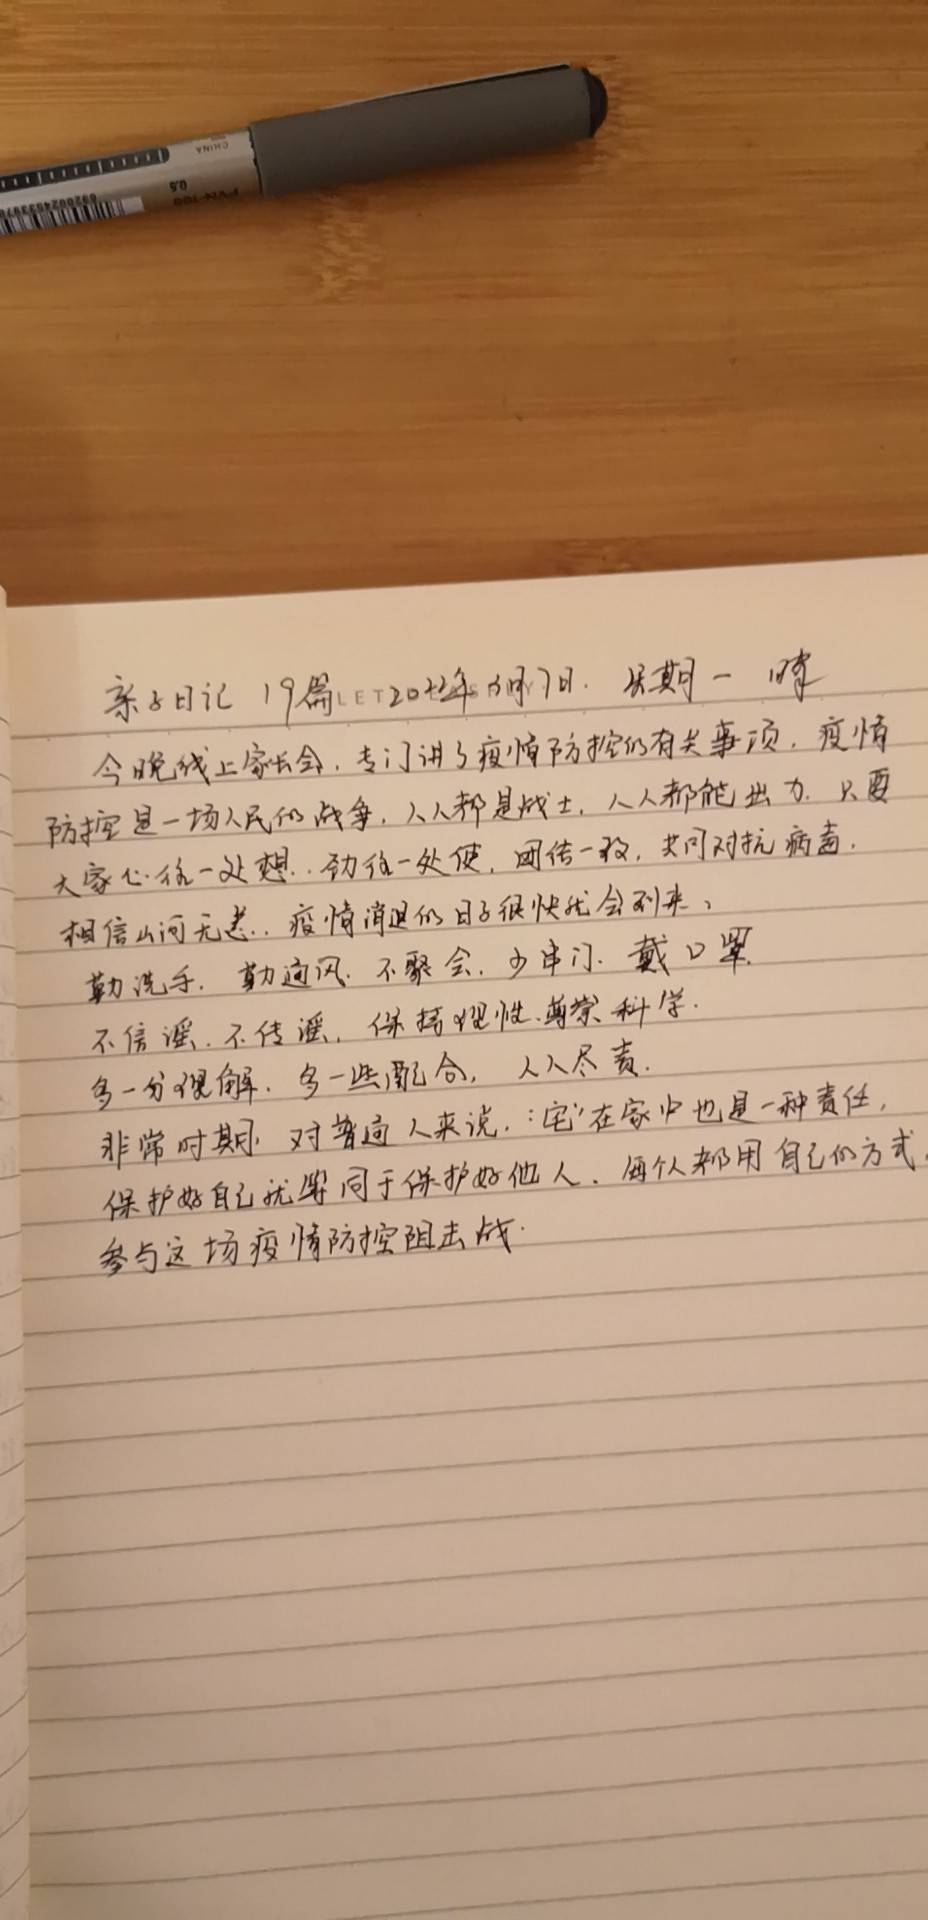 CHINA
0.5
亲子日记 19篇 2022年3月7日. 星期一 晴
今晚线上家长会.专门讲了疫情防控的有关事项.疫情
防控是一场人民的战争.人人都是战士.人人都能出力.只要
大家心往一处想..劲往一处使,团结一致,共同对抗病毒.
相信山河无恙..疫情消退的日子很快就会到来、
勤洗手.勤通风.不聚会.少串门.戴口罩.
不信谣.不传谣.保持理性.尊崇科学.
多一分理解.多一些配合,人人尽责.
非常时期 对普通人来说.:宅"在家中也是一种责任.
保护好自己就等同于保护好他人.每个人都用自己的方式.
参与这场疫情防控阻击战.